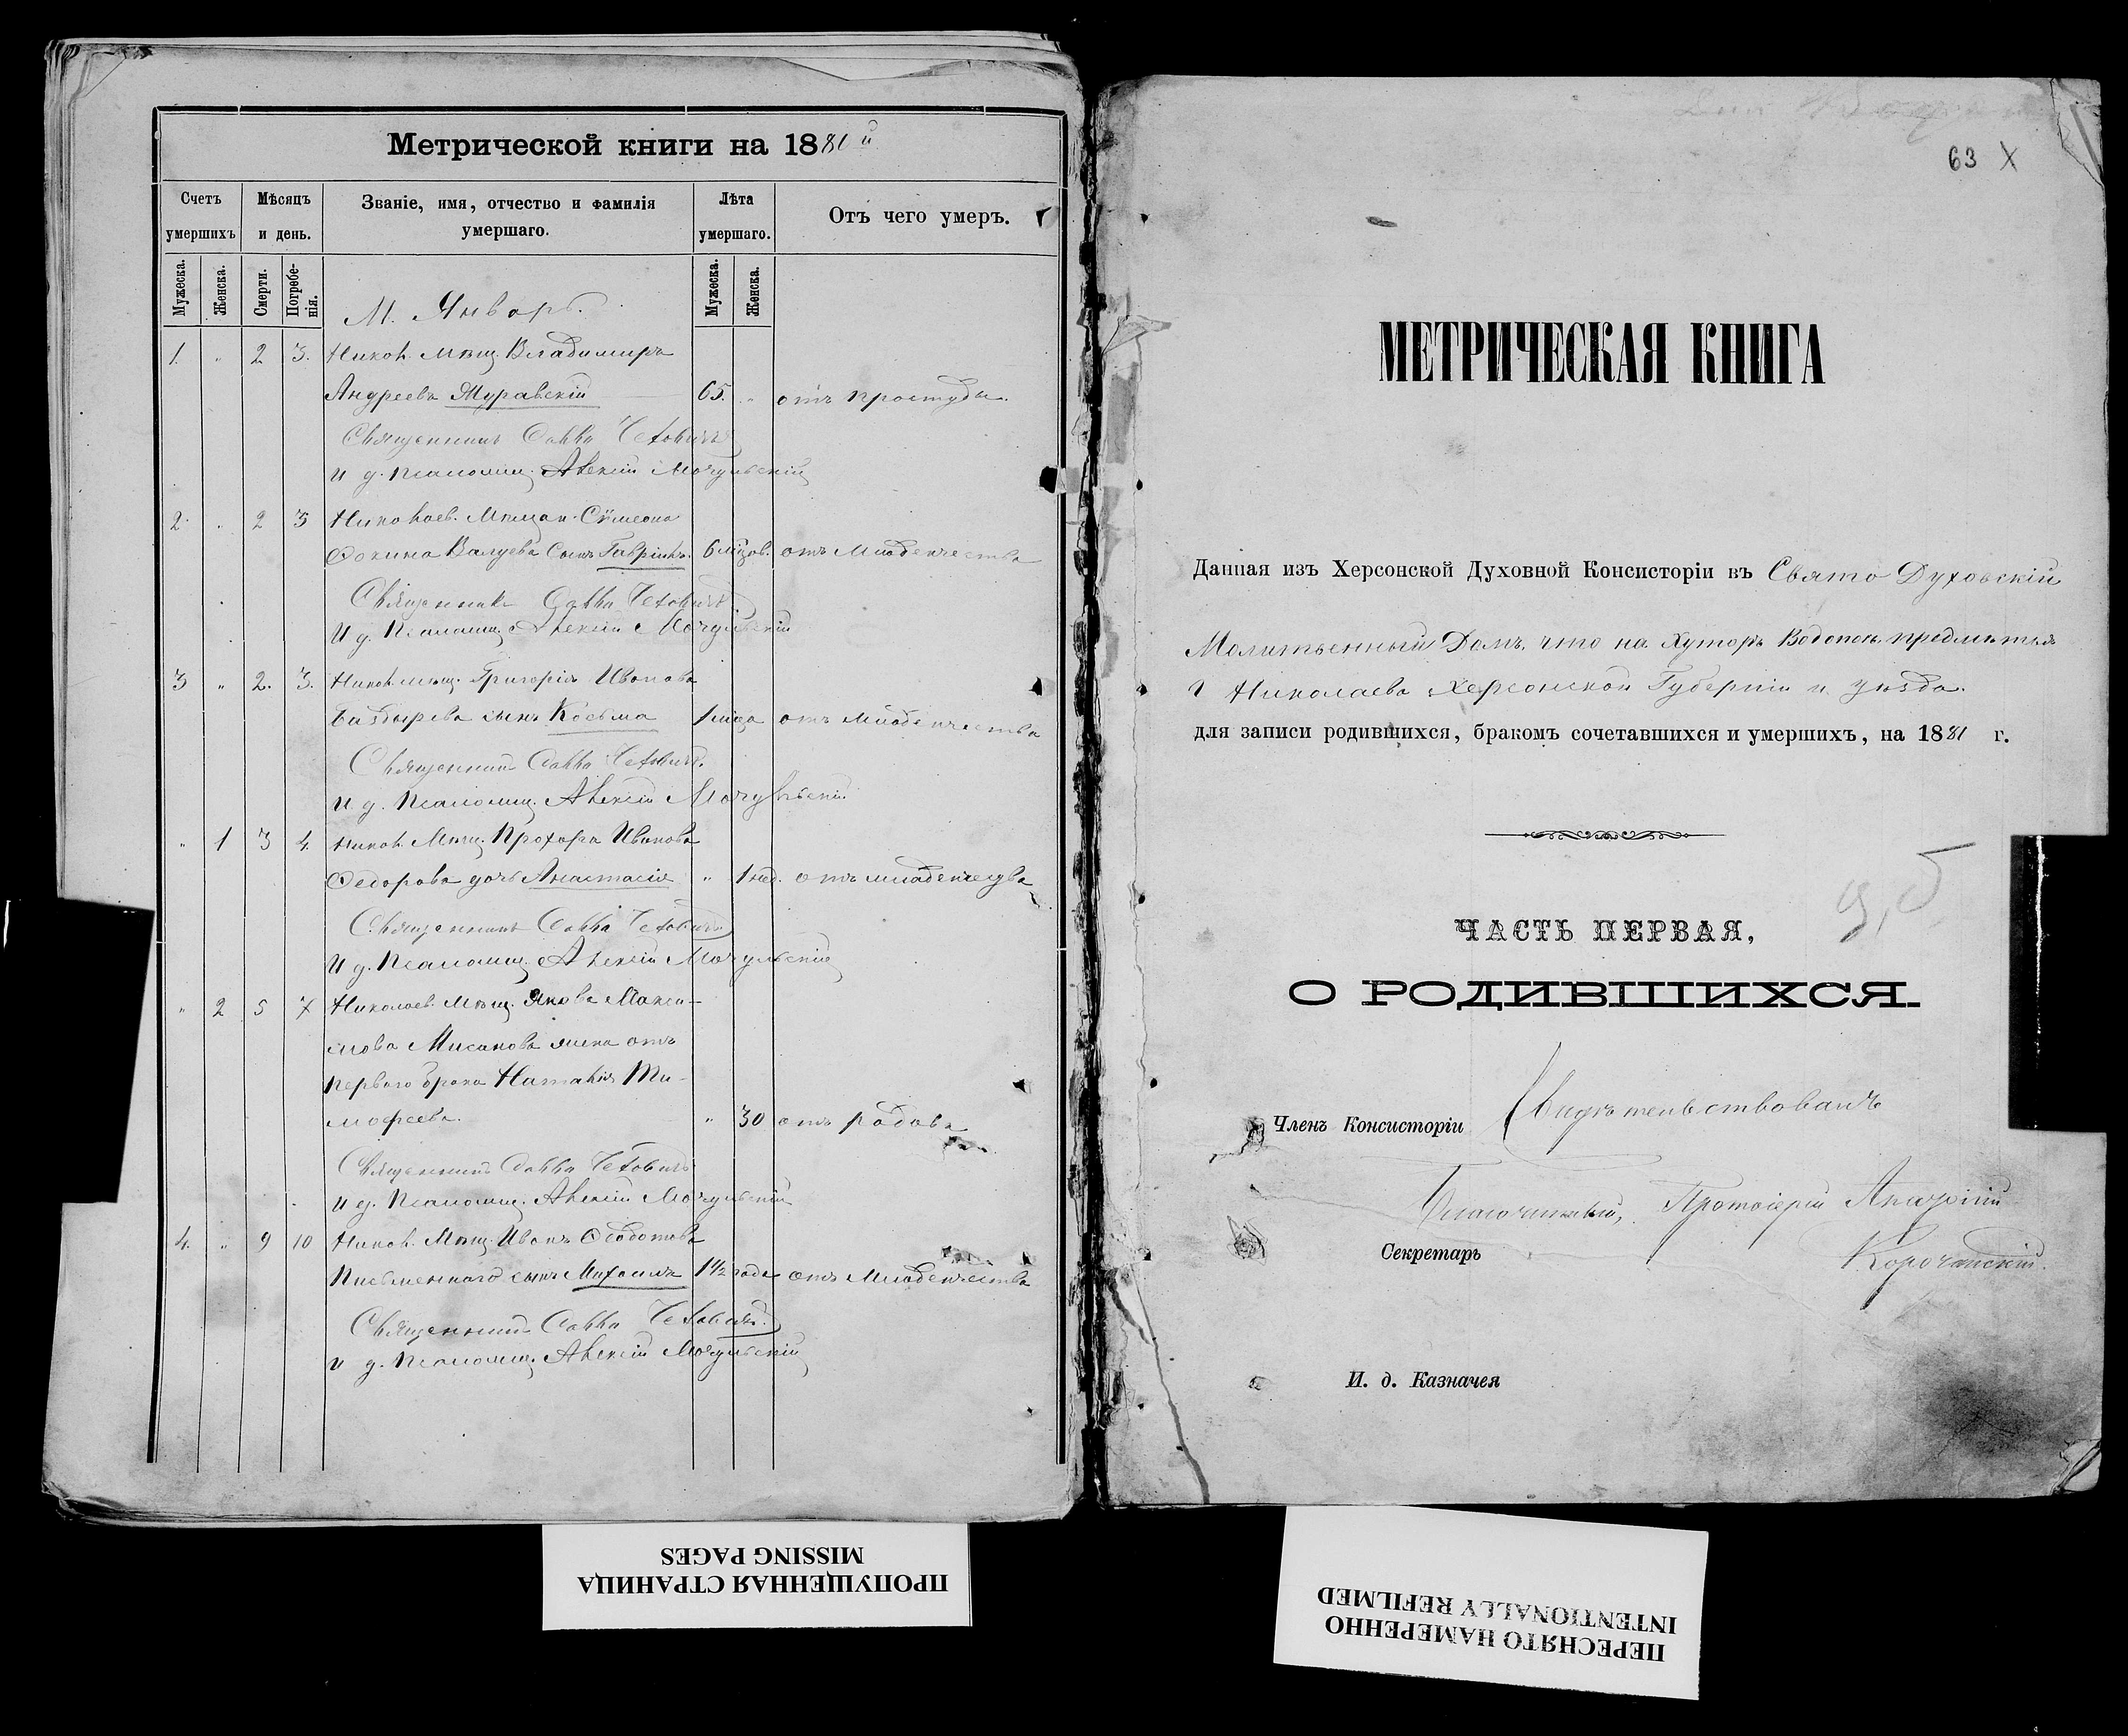 Метрической книги на 1881 й
Счетъ умершихъ
Мѣсяцъ и день.
Званіе, имя, отчество и фамилія умершаго.
Лѣта умершаго.
Отъ чего умеръ.
Мужеска.
Женска.
Смерти.
Погребенія.
Мужеска.
Женска.
М. Январь.
1. " 2 3. Никол. Мѣщ. Владимиръ
Андреевъ Муравскій 65. " отъ простуды.
Священникъ Савва Чехович
И д. Псаломщ. Алексій Мочульскій
2. " 2 3 Николаев. Мѣщан. Сѵмеона
Фокина Валуева сынъ Гавріилъ. 6 мѣсяцов. отъ младенчества
Священникъ Савва Чехович
И д. Псаломщ. Алексій Мочульскій
3 " 2. 3. Никол. мѣщ. Григорія Иванова
сынъ Косьма 1 мѣсяца отъ младенчества
Священникъ Савва Чехович.
И д. Псаломщ. Алексій Мочульскій
" 1 3 4. Никол. Мѣщ. Прохора Иванова
Федорова дочь Анастасія " 1 нед. отъ младенчества
Священникъ Савва Чехович
И д. Псаломщ. Алексій Мочульскій
" 2 5 7 Николаев. Мѣщ. Якова Макси-
мова жена отъ
перваго брака Наталія Ти-
мофеева. " 30 отъ родовъ
Священникъ Савва Чехович
И д. Псаломщ. Алексій Мочульскій
4. " 9 10 Никол. Мѣщ. Иванъ Ѳеодотова
Письменнаго сынъ Михаилъ 1 1/2 года отъ младенчества
Священникъ Савва Чехович.
И д. Псаломщ. Алексій Мочульскій
63 X
МЕТРИЧЕСКАЯ КНИГА
Данная изъ Херсонской Духовной Консисторіи въ Свято Духовскій
Молитвенный Домъ, что на Хуторѣ Водопой, предмѣстья
г Николаева Херсонской Губерніи и уѣзда.
для записи родившихся, бракомъ сочетавшихся и умершихъ, на 1881 г.
ЧАСТЬ ПЕРВАЯ,
О РОДИВШИХСЯ.
Членъ Консисторіи Свидѣтельствовалъ
Благочинный, Протоіерей
Секретарь Корочанскій.
И. д. Казначея
ПРОПУЩЕННАЯ СТРАНИЦА
MISSING PAGES
ПЕРЕСНЯТО НАМЕРЕННО
INTENTIONALLY REFILMED